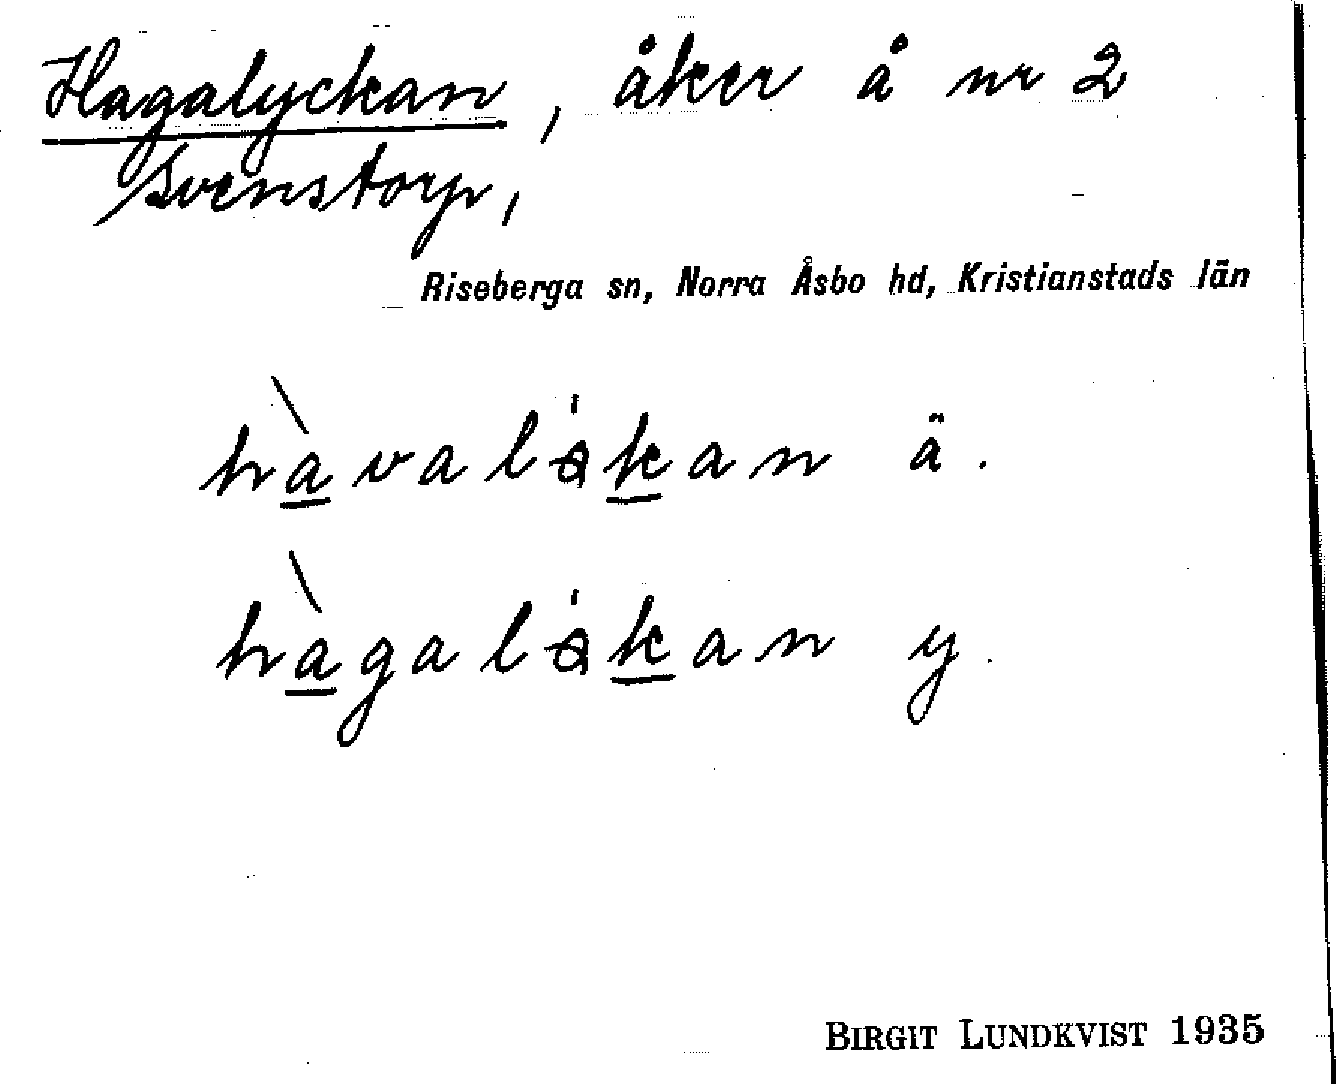 Hagalyckan, åker å nr 2
Svenstorp,
Riseberga sn, Norra Åsbo hd, Kristianstads län
hàvaló̵kan ä.
hàgaló̵kan y.
BIRGIT LUNDKVIST 1935